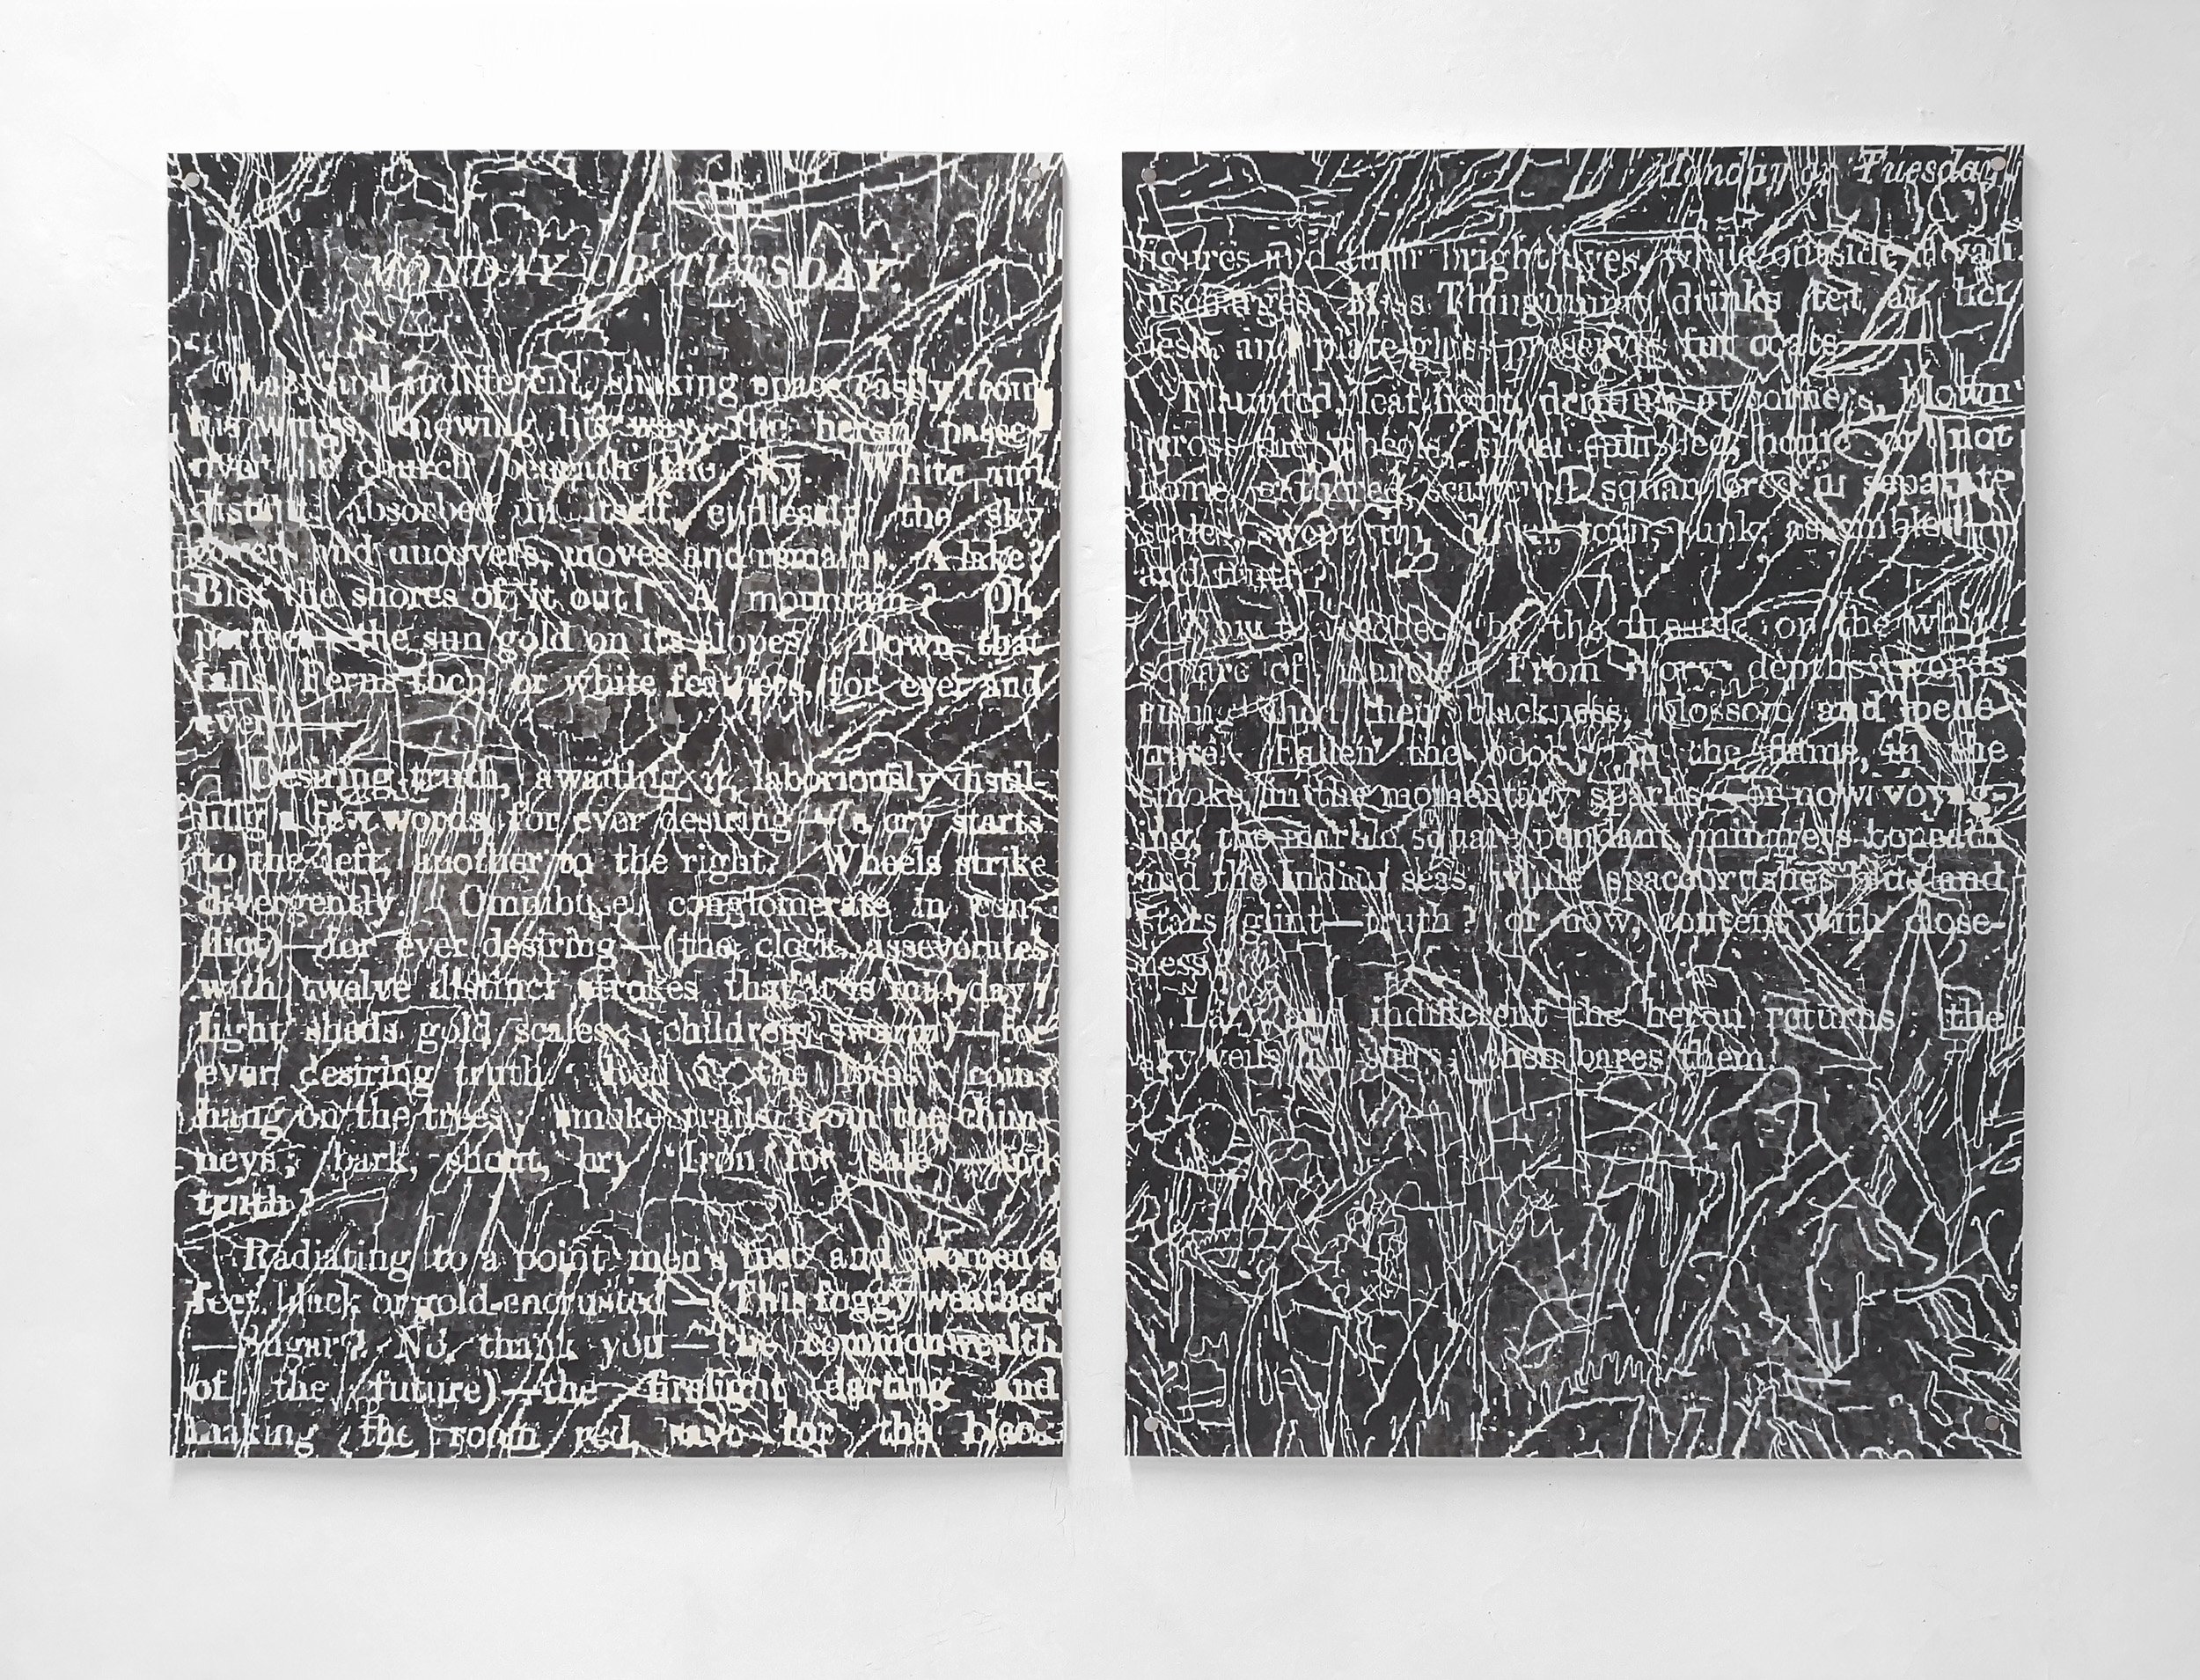 MONDAY OR TUESDAY.
Lazy and indifferent, shaking space easily from
his wings, knowing his way, the heron passes
over the church beneath the sky. White and
distant, absorbed in itself, endlessly the sky
covers and uncovers, moves and remains. A lake?
Blot the shores of it out! A mountain? Oh,
perfect—the sun gold on its slopes. Down that
falls. Ferns then, or white feathers, for ever and
ever——
Desiring truth, awaiting it, laboriously distil-
ling a few words, for ever desiring—(a cry starts
to the left, another to the right. Wheels strike
divergently. Omnibuses conglomerate in con-
flict)—for ever desiring—(the clock asseverates
with twelve distinct strokes that it is mid-day;
light sheds gold scales; children swarm)—for
ever desiring truth. Red is the dome; coins
hang on the trees; smoke trails from the chim-
neys; bark, shout, cry "Iron for sale"—and
truth?
Radiating to a point men's feet and women's
feet, black or gold-encrusted—(This foggy weather
—Sugar? No, thank you—The commonwealth
of the future)—the firelight darting and
making the room red, save for the black
Monday or Tuesday.
figures and their bright eyes, while outside a van
discharges, Miss Thingummy drinks tea at her
desk, and plate-glass preserves fur coats——
Flaunted, leaf-light, drifting at corners, blown
across the wheels, silver-splashed, home or not
home, gathered, scattered, squandered in separate
scales, swept up, down, torn, sunk, assembled—
and truth?
Now to recollect by the fireside on the white
square of marble. From ivory depths words
rising shed their blackness, blossom and pene-
trate. Fallen the book; in the flame, in the
smoke, in the momentary sparks—or now voyag-
ing, the marble square pendant, minarets beneath
and the Indian seas, while space rushes blue and
stars glint—truth? or now, content with close-
ness?
Lazy and indifferent the heron returns; the
sky veils her stars; then bares them.